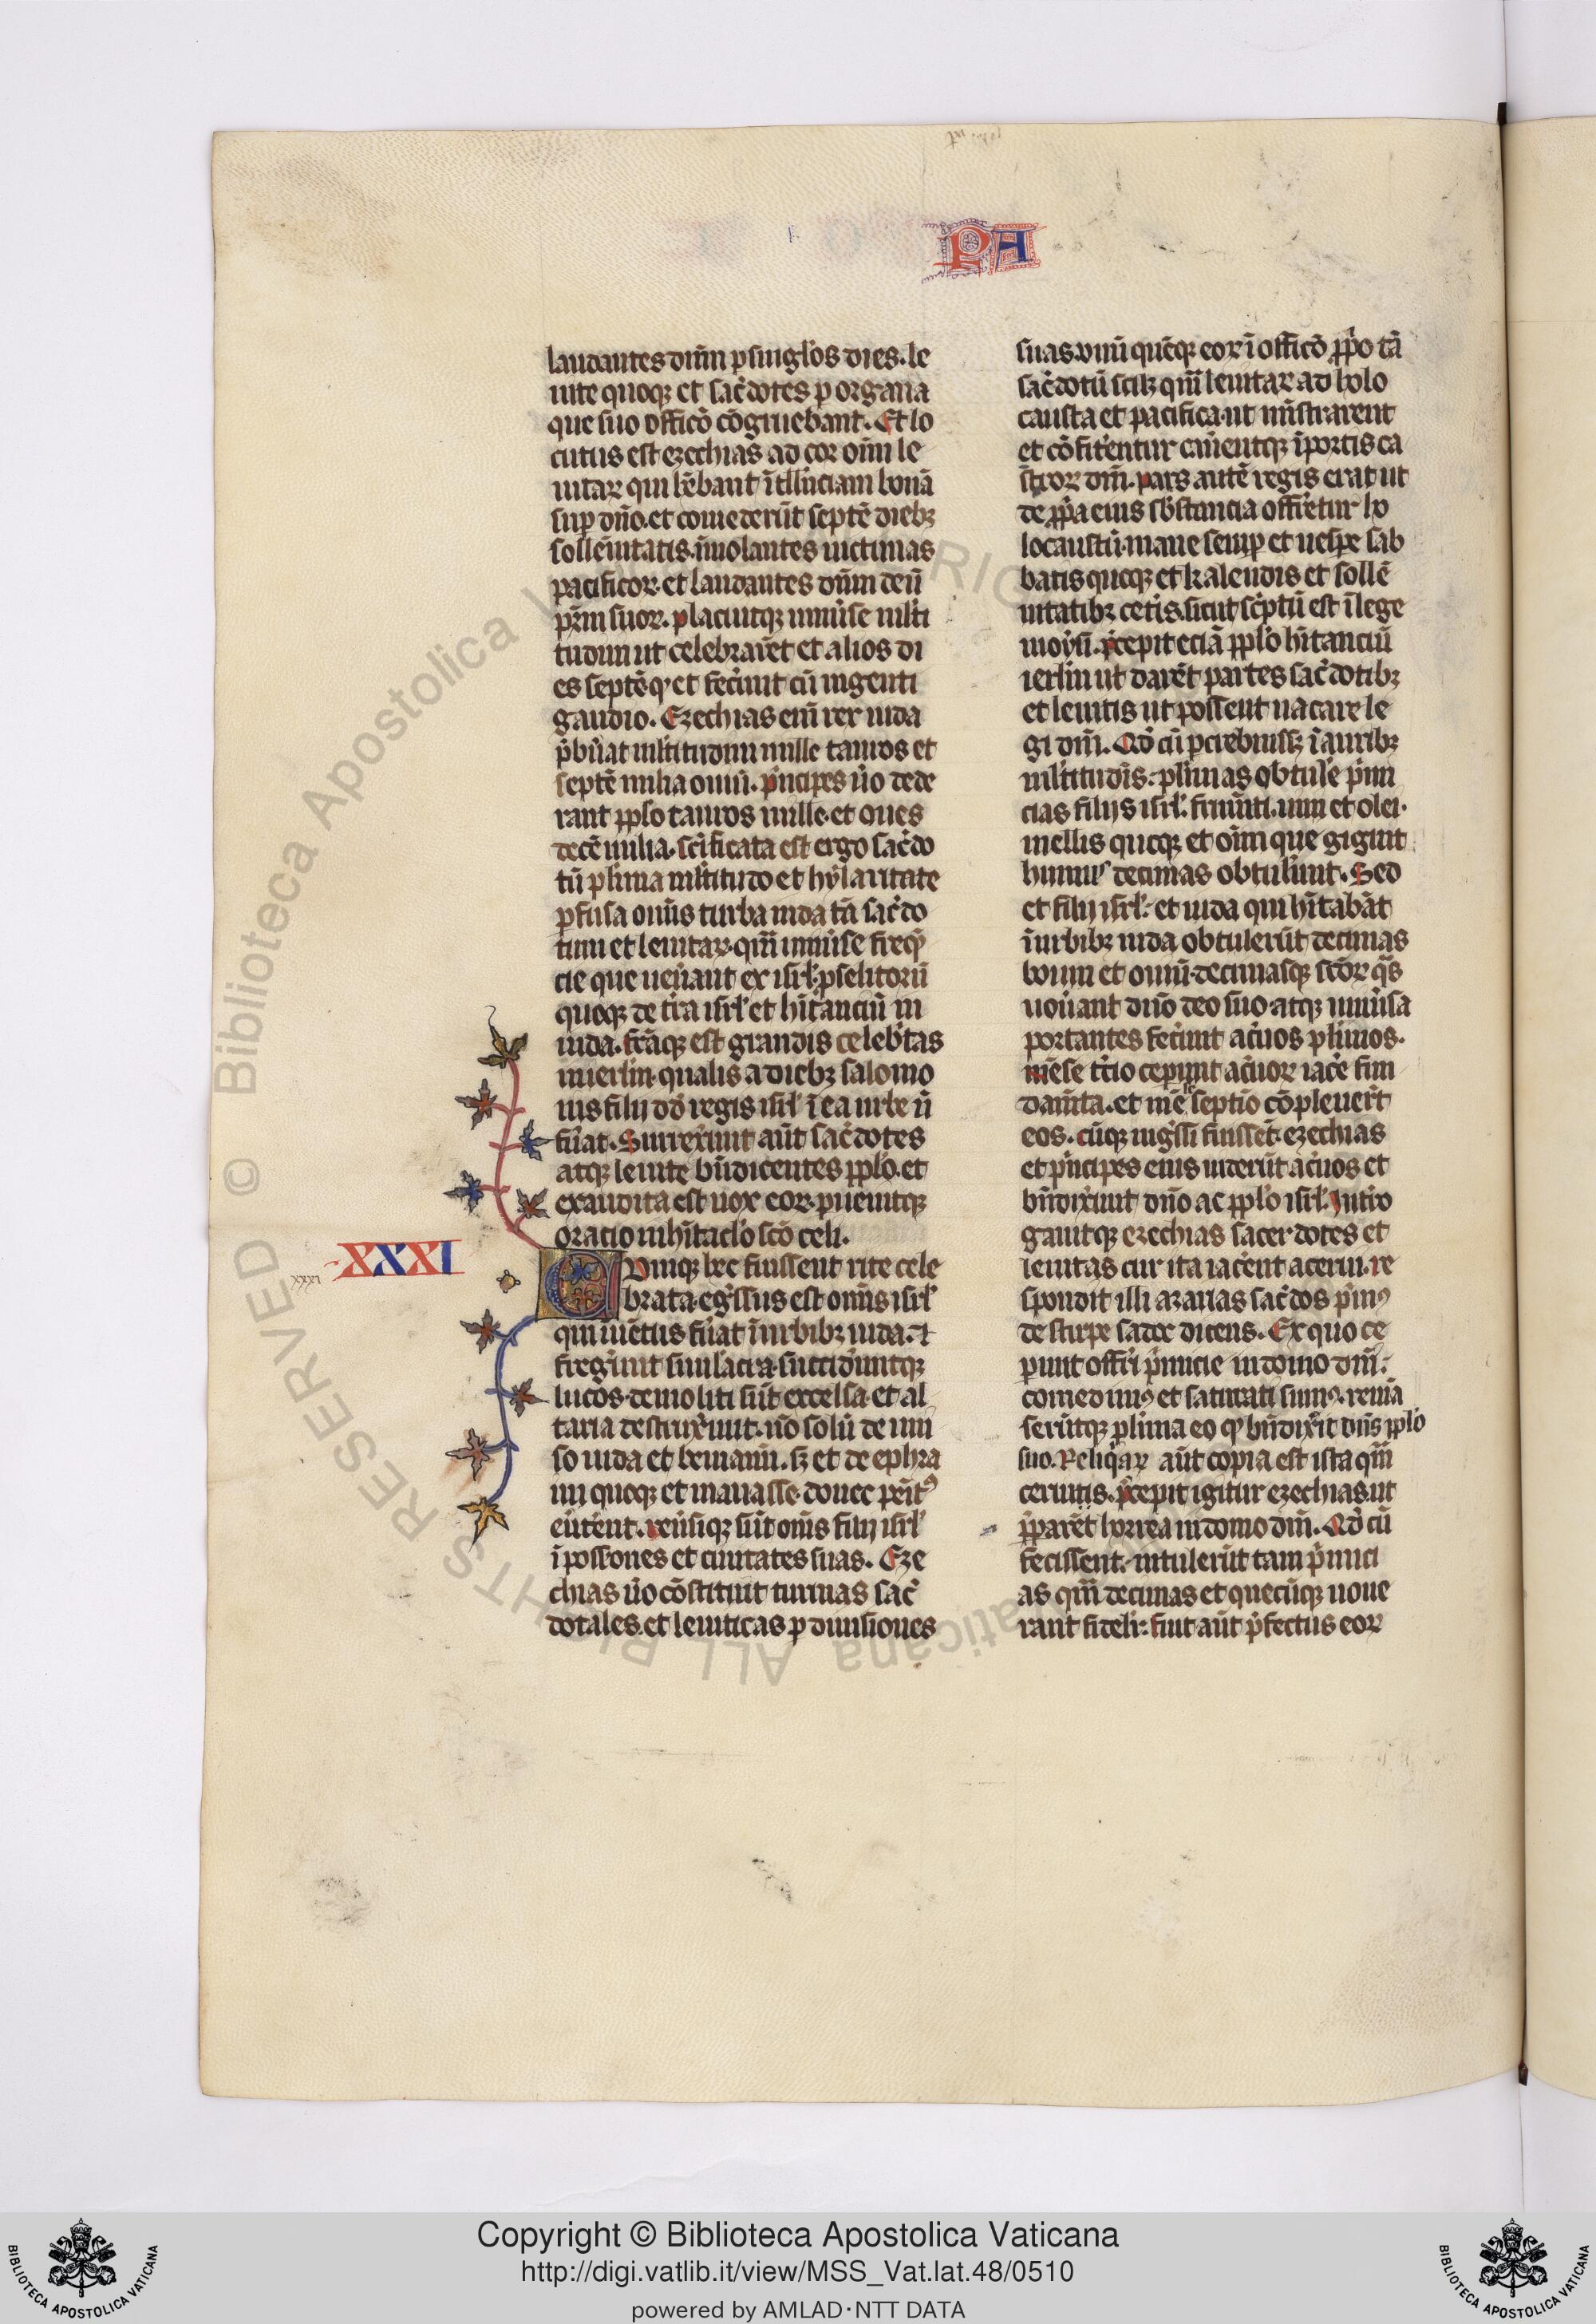 PA
laudantes dn̄m ꝑ singl'os dies. le
uite quoqꝫ et sac̓dotes ꝑ organa
que suo officō cōgruebant. Et lo
cutus est ezechias ad cor oīm le
uitaꝝ qui hēbant ītll'nciam bonā
suꝑ dn̄o. et comederūt septē diebꝫ
sollēnitatis. īmolantes uictimas
pacificoꝝ. et laudantes dn̄m deū
pr̄m suoꝝ. placuitqꝫ uniu̓se ml'ti
tudini ut celebrar̄et et alios di
es septē qd̓ et fec̓unt cū ingenti
gaudio. Ezechias eni rex iuda
p̄bu̓at ml'titudini mille tauros et
septē milia ouiū. p̓ncipes u̓o dede
rant pp̄lo tauros mille. et oues
decē milia. sc̄ificata est ergo sac̓do
tū pl'ima ml'titudo et hylaritate
ꝑfusa om̄is turba iuda tā sac̓do
tum et leuitaꝝ. qm̄ uniu̓se freqn̄
cie que uen̓ant ex isrl'. ꝓselitorū
quoqꝫ de tr̄a isrl' et hītanciū in
iuda. fc̄āqꝫ est grandis celeb̓tas
in ierl'm. qualis a diebꝫ salomo
nis filij dd̄ regis isrl' ī ea urbe n̄
fu̓at. Surrex̓unt aūt sac̓dotes
atqꝫ leuite bn̄dicentes pp̄lo. et
exaudita est uox eoꝝ. ꝑuenitqꝫ
oracio in hītacl'o sc̄o celi.
XXXI
xxxi
Cumqꝫ hec fuissent rite cele
brata. eg̓ssus est om̄is isrl'
qui īuētus fu̓at ī urbibꝫ iuda. ⁊
freg̓unt simulacra. succid̓untqꝫ
lucos. demoliti sūt excelsa. et al
taria destrux̓unt. nō solū de uni
so iuda et beniamī. sꝫ et de ephra
im quoqꝫ et manasse. donec penit̓
eu̓terent. reu̓siqꝫ sūt om̄s filij isrl'
ī poss̄ones et ciuitates suas. Eze
chias u̓o cōstituit turmas sac̓
dotales. et leuiticas ꝑ diuisiones
suas. unū quēqꝫ eoꝝ ī officō ꝓp̓o tā
sac̓dotū scilꝫ qm̄ leuitaꝝ ad holo
causta et pacifica. ut mīstrarent
et cōfit̓entur can̓entqꝫ ī portis ca
stroꝝ dn̄i. pars autē regis erat ut
de ꝓp̓a eius sb̓stancia offer̓etur ho
locaustū. mane semꝑ et uesꝑe sab
batis quoqꝫ et kalendis et sollē
nitatibꝫ cet̓is. sicut sc̓ptū est ī lege
moysi. p̄cepit eciā pp̄lo hītanciū
ierl'm ut darēt partes sac̓dotibꝫ
et leuitis ut possent uacare le
gi dn̄i. Qd̓ cū ꝑcrebuissꝫ ī auribꝫ
ml'titudīs: pl'imas obtul'e p̓mi
cias filij isrl'. frum̄ti. uini et olei.
mellis quoqꝫ et oīm que gignit
humus decimas obtul'unt. Sed
et filij isrl': et iuda qui hītabāt
ī urbibꝫ iuda obtulerūt decimas
boum et ouiū. decimasqꝫ sc̄oꝝ q̄s
uou̓ant dn̄o deo suo. atqꝫ uniu̓sa
portantes fec̓unt ac̓uos pl'imos.
mēse tc̓io ceperunt ac̓uoꝝ iac̓e fun
dam̄ta. et mēse septīo cōpleuer̄t
eos. cūqꝫ ing̓ssi fuissēt ezechias
et p̓ncipes eius uiderūt ac̓uos et
bn̄dix̓unt dn̄o ac pp̄lo isrl'. Int̓ro
gauitqꝫ ezechias sacerdotes et
leuitas cur ita iac̓ent acerui. re
spondit illi azarias sac̓dos p̓mꝰ
de stirpe sadoc dicens. Ex quo ce
perunt offr̓i p̓micie in domo dn̄i:
comedimꝰ et saturati sumꝰ. remā
serūtqꝫ pl'ima eo qd̓ bn̄dix̓it dn̄s pp̄lo
suo. Reliq̓aꝝ aūt copia est ista qm̄
cernitis. p̄cepit igitur ezechias. ut
p̄pararēt horrea in domo dn̄i. Qd̓ cū
fecissent. intulerūt tam p̓mici
as qm̄ decimas et quecūqꝫ uoue
rant fideli: fuit aūt p̄fectus eoꝝ
Copyright © Biblioteca Apostolica Vaticana
http://digi.vatlib.it/view/MSS_Vat.lat.48/0510
powered by AMLAD·NTT DATA
BIBLIOTECA APOSTOLICA VATICANA
BIBLIOTECA APOSTOLICA VATICANA